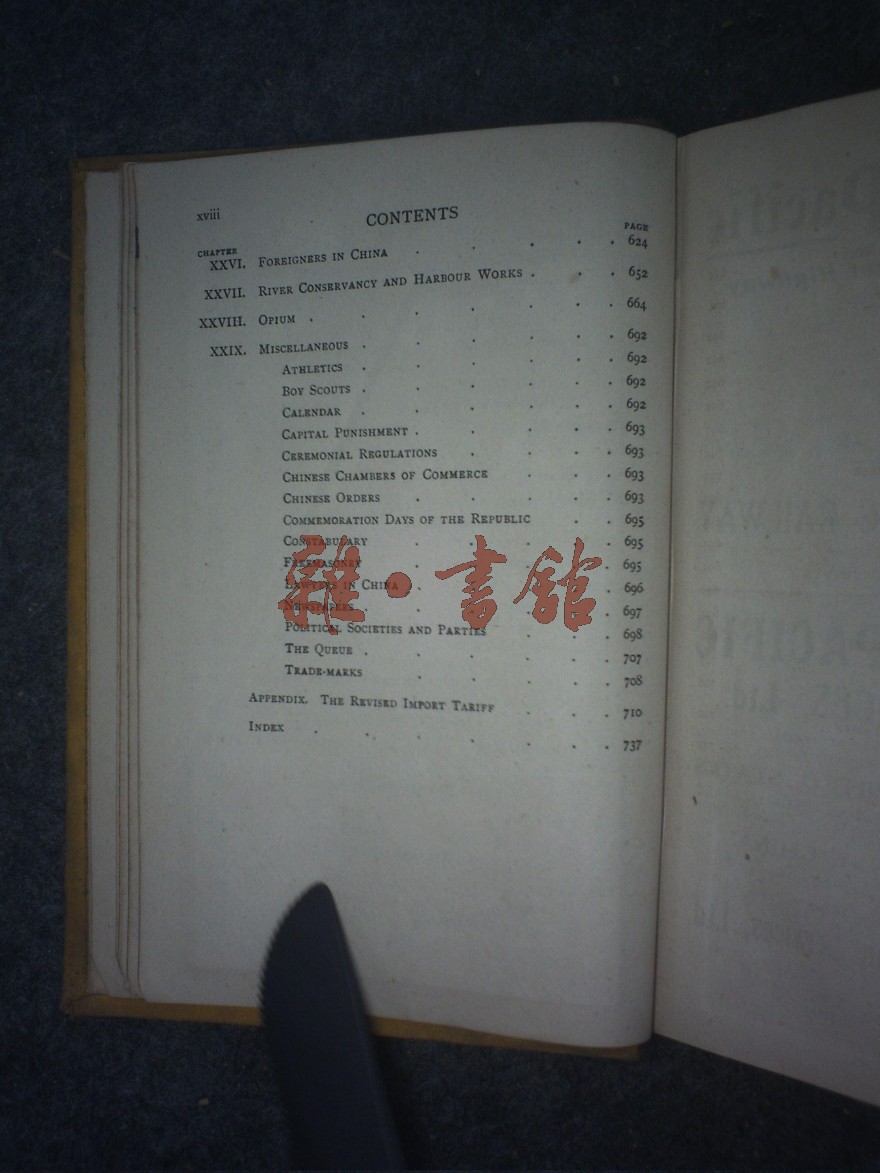 xviii CONTENTS
PAGE
CHAPTER
XXVI. FOREIGNERS IN CHINA . . . . . 624
XXVII. RIVER CONSERVANCY AND HARBOUR WORKS . . . 652
XXVIII. OPIUM . . . . . . 664
XXIX. MISCELLANEOUS . . . . . . 692
ATHLETICS . . . . . . 692
BOY SCOUTS . . . . . . 692
CALENDAR . . . . . . 692
CAPITAL PUNISHMENT . . . . . 693
CEREMONIAL REGULATIONS . . . . 693
CHINESE CHAMBERS OF COMMERCE . . . 693
CHINESE ORDERS . . . . . 693
COMMEMORATION DAYS OF THE REPUBLIC . . 695
CONSTABULARY . . . . . 695
FREEMASONRY . . . . . 695
LAWYERS IN CHINA . . . . . 696
NEWSPAPERS . . . . . . 697
POLITICAL SOCIETIES AND PARTIES . . . 698
THE QUEUE . . . . . . 707
TRADE-MARKS . . . . . 708
APPENDIX. THE REVISED IMPORT TARIFF . . . 710
INDEX . . . . . . 737
雜·書館
Pacific
RAILWAY